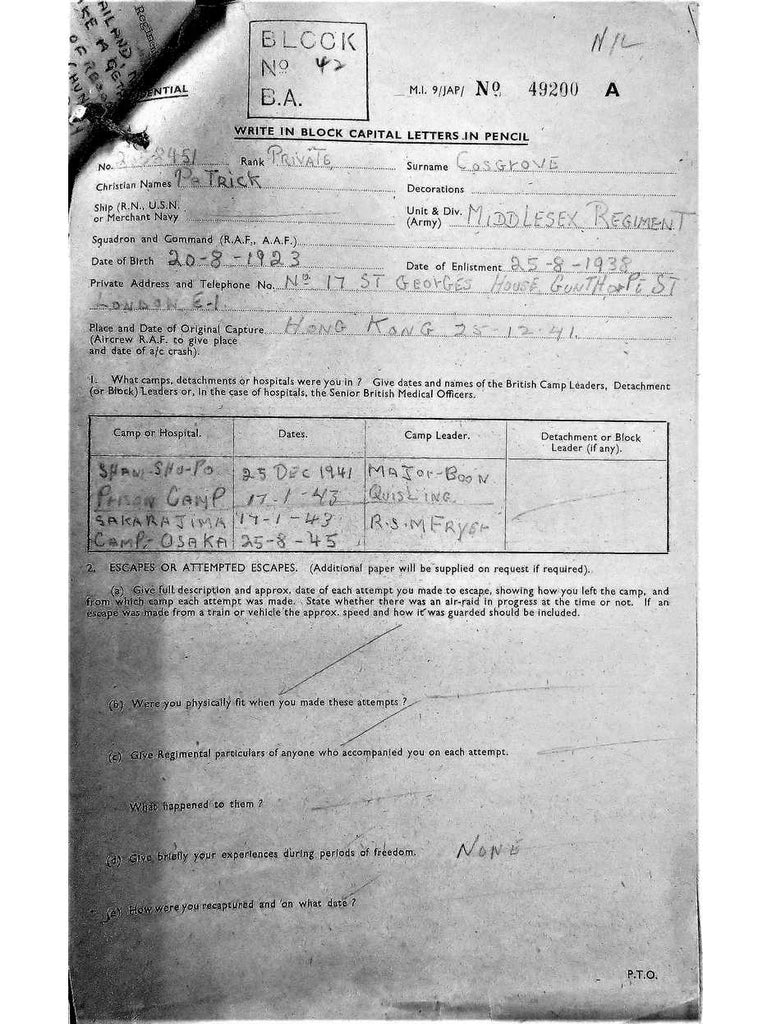 BLOCK
Nº 42
B.A.
N/L
M.I. 9/JAP/ Nº 49200 A
WRITE IN BLOCK CAPITAL LETTERS IN PENCIL
No. Rank PRIVATE Surname COSGROVE
Christian Names PATRICK Decorations
Ship (R.N., U.S.N. or Merchant Navy
Unit & Div. (Army) MIDDLESEX REGIMENT
Squadron and Command (R.A.F., A.A.F.)
Date of Birth 20-8-1923 Date of Enlistment 25-8-1938
Private Address and Telephone No. Nº 17 ST GEORGES HOUSE GUNTHORPE ST
LONDON E-1.
Place and Date of Original Capture HONG KONG 25-12-41.
(Aircrew R.A.F. to give place
and date of a/c crash).
1. What camps, detachments or hospitals were you in ? Give dates and names of the British Camp Leaders, Detachment
(or Block) Leaders or, in the case of hospitals, the Senior British Medical Officers.
Camp or Hospital. Dates. Camp Leader. Detachment or Block
Leader (if any).
SHAM-SHU-PO 25 DEC 1941 MAJOR-BOON
CAMP 17-1-43 QUISLING
SAKARAJIMA 17-1-43 R.S.M FRYER
CAMP-OSAKA 25-8-45
2. ESCAPES OR ATTEMPTED ESCAPES. (Additional paper will be supplied on request if required).
(a) Give full description and approx. date of each attempt you made to escape, showing how you left the camp, and
from which camp each attempt was made. State whether there was an air-raid in progress at the time or not. If an
escape was made from a train or vehicle the approx. speed and how it was guarded should be included.
(b) Were you physically fit when you made these attempts ?
(c) Give Regimental particulars of anyone who accompanied you on each attempt.
What happened to them ?
(d) Give briefly your experiences during periods of freedom. NONE
(e) How were you recaptured and on what date ?
P.T.O.